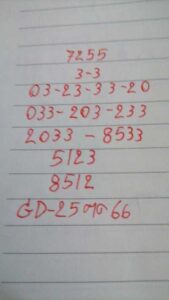 7255
3-3
03-23-33-20
033-203-233
2033-8533
5123
8512
GD-25 ကက 66